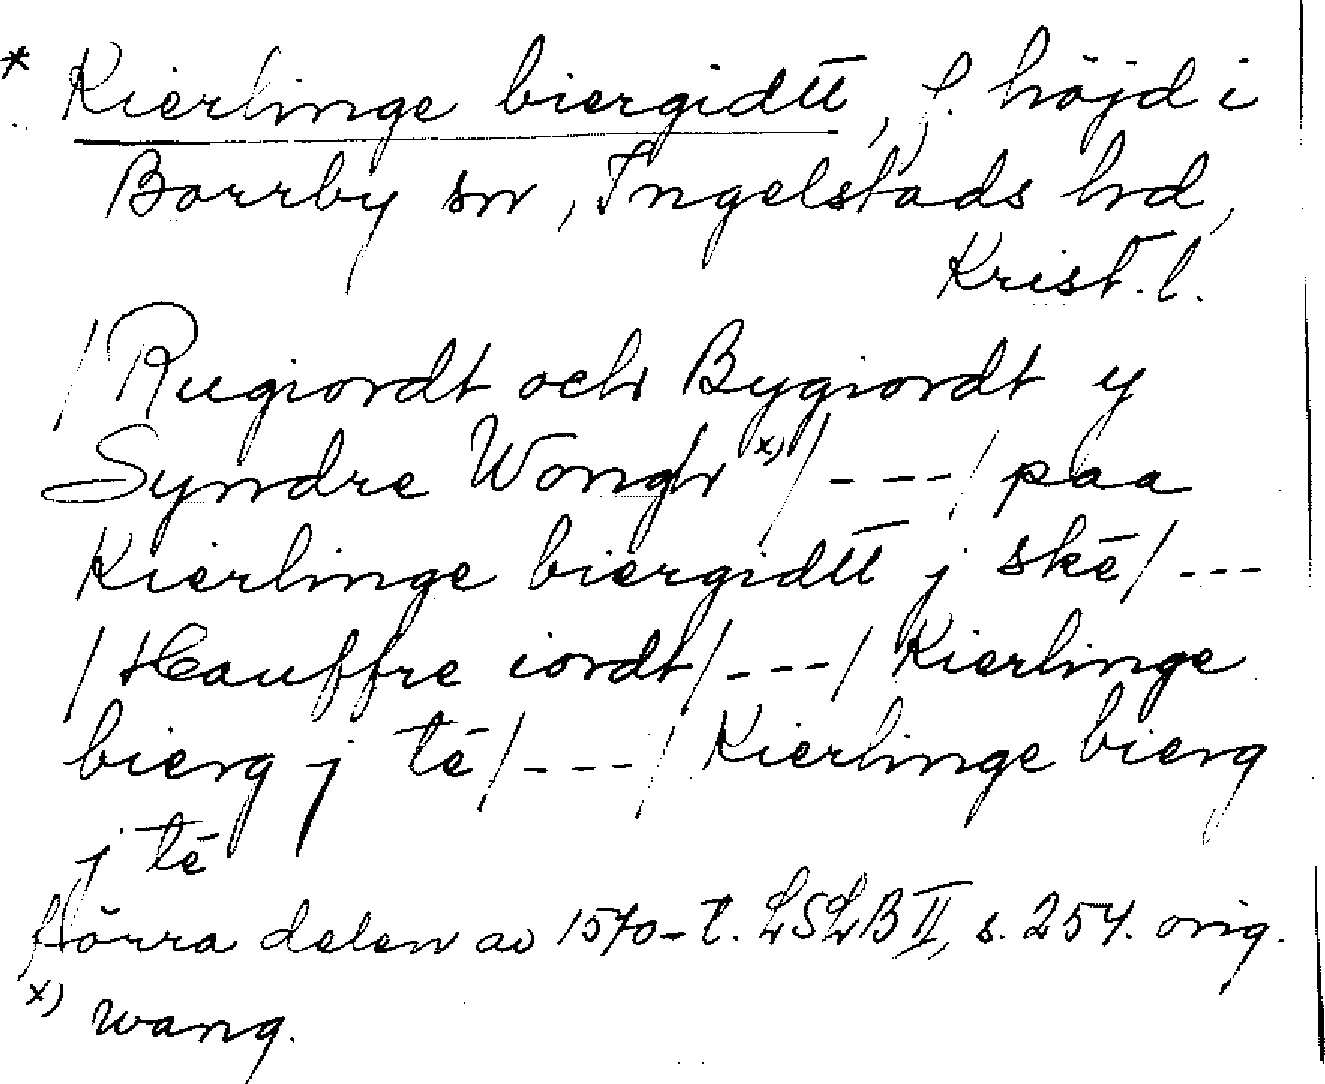 * Kierlinge biergidtt, f. höjd i
Borrby sn, Ingelstads hd,
Krist. l.
/Rugiordt och Bygiordt y
Syndre Wongh x)/---/ paa
Kierlinge biergidtt j skē/---
/Hauffre iordt/---/ Kierlinge
bierg j tē/---/ Kierlinge bierg
j tē
förra delen av 1570-t. LSLB II, s. 254. orig.
x) wang.